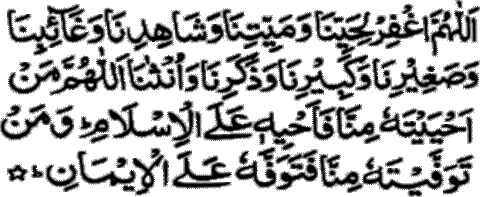 اَللّٰهُمَّ اغْفِرْ لِحَيِّنَا وَمَيِّتِنَا وَشَاهِدِنَا وَغَآئِبِنَا
وَصَغِيْرِنَا وَكَبِيْرِنَا وَذَكَرِنَا وَاُنْثٰنَا اَللّٰهُمَّ مَنْ
اَحْيَيْتَهٗ مِنَّا فَاَحْيِهٖ عَلَى الْاِسْلَامِ وَمَنْ
تَوَفَّيْتَهٗ مِنَّا فَتَوَفَّهٗ عَلَى الْاِيْمَانِ ☆